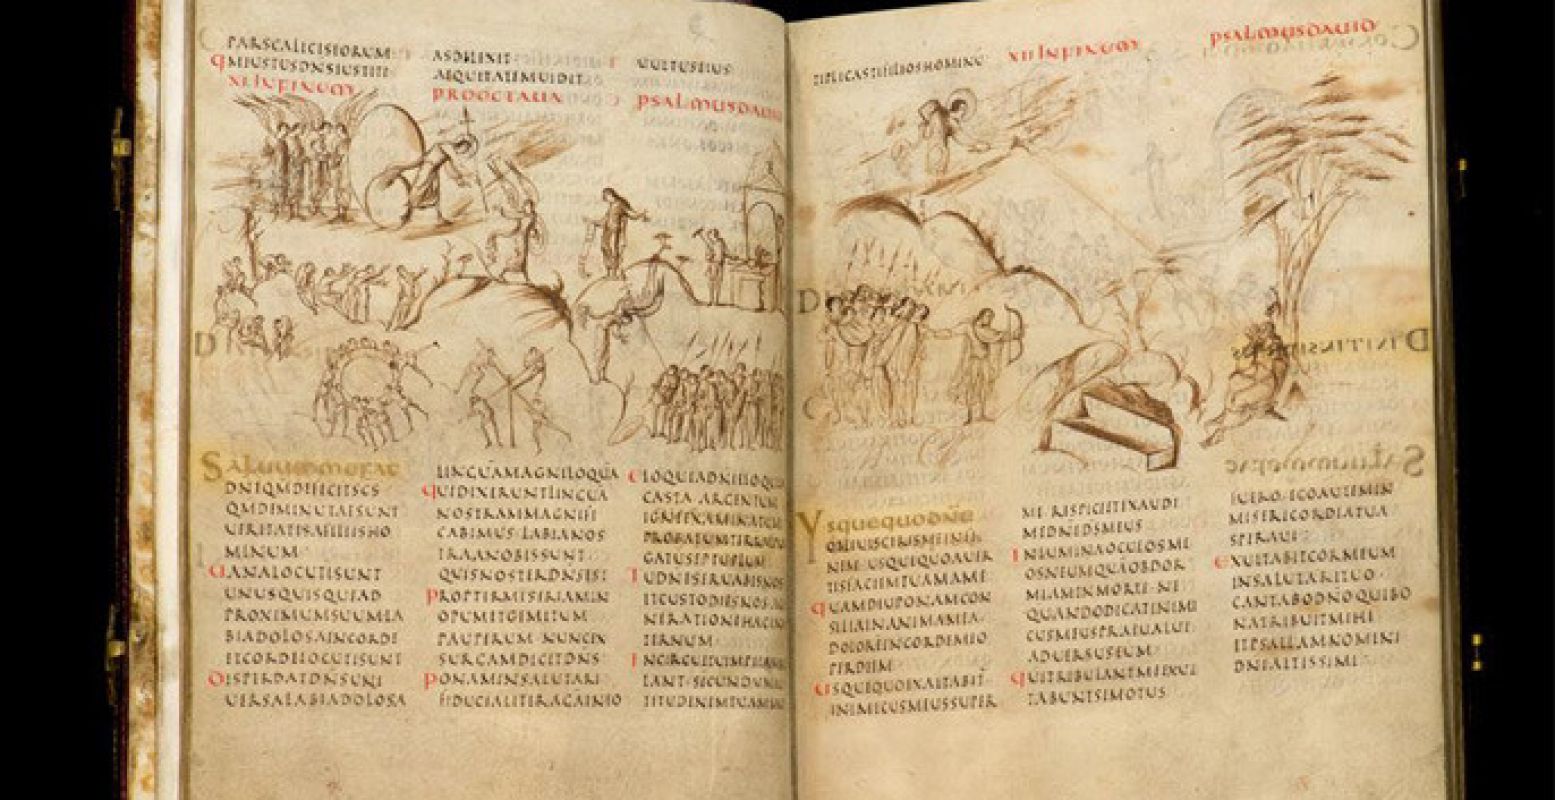 PARSCALICISEORUM
QMIUSTUSDNSIUSTITI
XI INFINEM
ASDILEXIT
AEQUITATEMUIDIT
PROOCTAUA
UULTUSEIUS
PSALMUSDAUID
SALUUMMEFAC
DNEQMDEFICITSCS
QMDIMINUTAESUNT
UERITATESAFILIISHO
MINUM
UANALOCUTISUNT
UNUSQUISQUEAD
PROXIMUMSUUMLA
BIADOLOSAINCORDE
ETCORDELOCUTISUNT
DISPERDATDNSUNI
UERSALABIADOLOSA
LINGUAMAGNILOQUA
QUIDIXERUNTLINGUA
NOSTRAMMAGNIFI
CABIMUS LABIANOS
TRAANOBISSUNT
QUISNOSTERDNSEST
PROPTERMISERIAMIN
OPUMETGEMITUM
PAUPERUM NUNCEX
SURGAMDICITDNS
PONAMINSALUTARI
FIDUCIALITERAGAMINEO
ELOQUIADNIELOQUI
CASTA ARGENTUM
IGNEEXAMINATUM
PROBATUMTERRAE
GATUSEPTUPLUM
TUDNESERUABISNOS
ETCUSTODIESNOS
NERATIONEHACIN
TERNUM
INCIRCUITUIMPII
LANT SECUNDUM
TITUDINEMTUAM
TIPLICASTIFILIOSHOMINU
XII INFINEM
PSALMUSDAUID
USQUEQUODNE
OBLIUISCERISMEINFI
NEM USQUEQUOAUER
TISFACIEMTUAMAME
QUAMDIUPONAMCON
SILIAINANIMAMEA
DOLOREINCORDEMEO
PERDIEM
USQUEQUOEXALTABIT
INIMICUSMEUSSUPER
ME RESPICEETEXAUDI
MEDNEDSMEUS
INLUMINAOCULOSME
OSNEUMQUAOBDOR
MIAMINMORTE NE
QUANDODICATINIMI
CUSMEUSPRAEUALUI
ADUERSUSEUM
QUITRIBULANTMEEXUL
TABUNTSIMOTUS
FUERO EGOAUTEMIN
MISERICORDIATUA
SPERAUI
EXULTABITCORMEUM
INSALUTARITUO
CANTABODNOQUIBO
NATRIBUITMIHI
ETPSALLAMNOMINI
DNIALTISSIMI